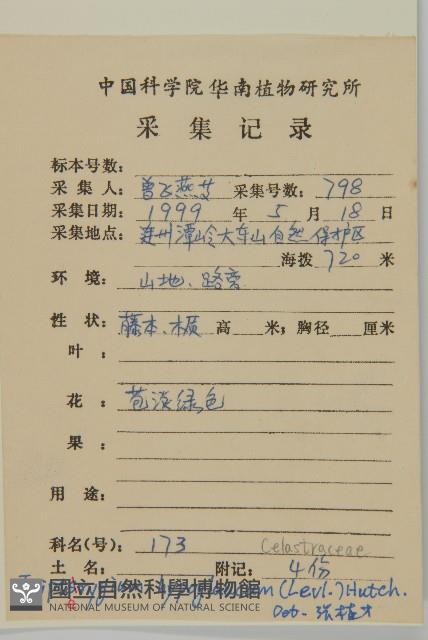 中国科学院华南植物研究所
采集记录
标本号数:
采集人: 曾飞燕 采集号数: 798
采集日期: 1999 年 5 月 18 日
采集地点: 连州潭岭大东山自然保护区
海拨 720 米
环境: 山地、路旁
性状: 藤本、木质 高 米; 胸径 厘米
叶:
花: 苞淡绿色
果:
用途:
科名(号): 173 Celastraceae
土名: 附记: 4份
(Levl.) Hutch.
國立自然科學博物館
NATIONAL MUSEUM OF NATURAL SCIENCE
Det. 张桂才